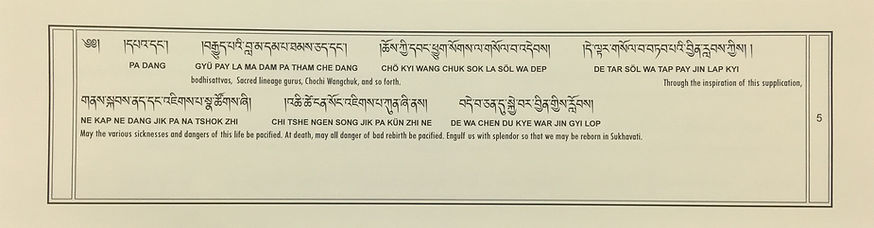 ༄༅། །དཔའ་དང་། །བརྒྱུད་པའི་བླ་མ་དམ་པ་ཐམས་ཅད་དང་། །ཆོས་ཀྱི་དབང་ཕྱུག་སོགས་ལ་གསོལ་བ་འདེབས། །དེ་ལྟར་གསོལ་བ་བཏབ་པའི་བྱིན་རླབས་ཀྱིས། །
PA DANG GYÜ PAY LA MA DAM PA THAM CHE DANG CHÖ KYI WANG CHUK SOK LA SÖL WA DEP DE TAR SÖL WA TAP PAY JIN LAP KYI
bodhisattvas, Sacred lineage gurus, Chochi Wangchuk, and so forth. Through the inspiration of this supplication,
གནས་སྐབས་ནད་དང་འཇིགས་པ་སྣ་ཚོགས་ཞི། །འཆི་ཚེ་ངན་སོང་འཇིགས་པ་ཀུན་ཞི་ནས། བདེ་བ་ཅན་དུ་སྐྱེ་བར་བྱིན་གྱིས་རློབས།
NE KAP NE DANG JIK PA NA TSHOK ZHI CHI TSHE NGEN SONG JIK PA KÜN ZHI NE DE WA CHEN DU KYE WAR JIN GYI LOP
May the various sicknesses and dangers of this life be pacified. At death, may all danger of bad rebirth be pacified. Engulf us with splendor so that we may be reborn in Sukhavati.
5